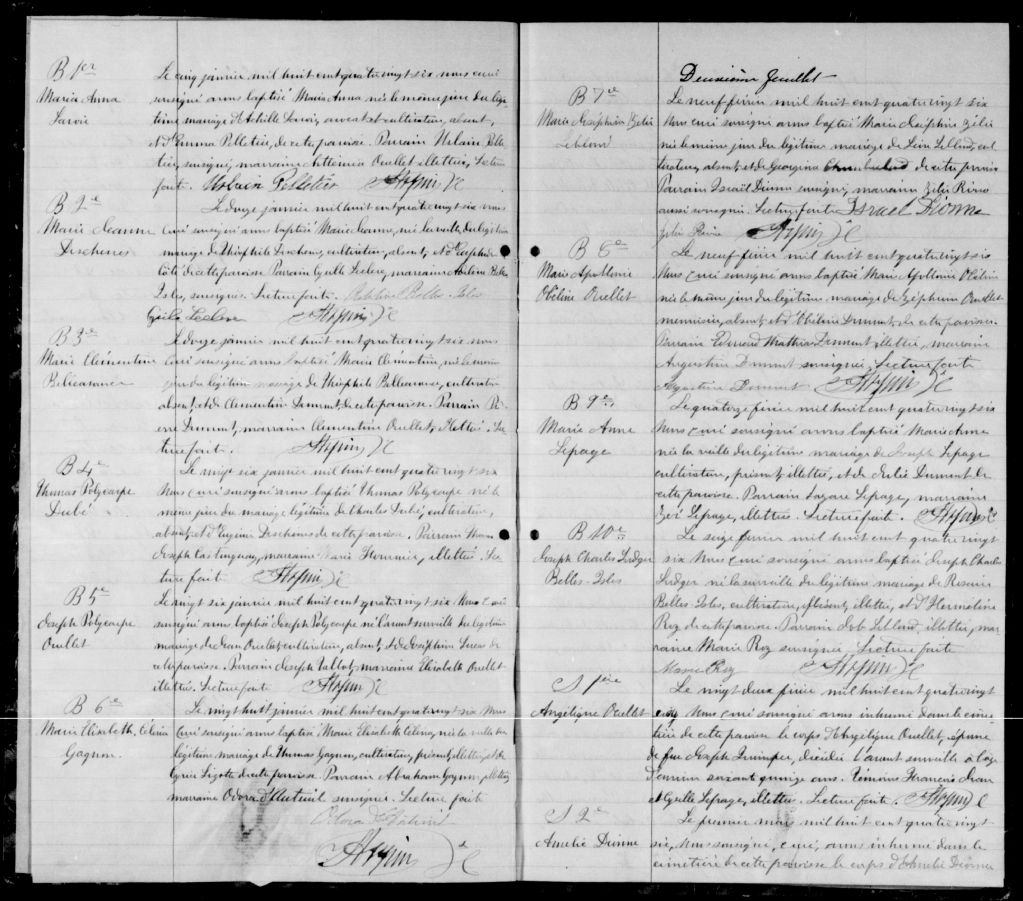 B 1er
Maria Anna
Savoie
Le cinq janvier mil huit cent quatre vingt six nous curé
soussigné avons baptisé Maria Anna née le même jour du légi
time mariage d'Achille Savoie, cultivateur, absent,
et d'Emma Pelletier, de cette paroisse. Parrain Urbain Pelle
tier, soussigné, marraine Arthémia Ouellet illettrée, Lecture
faite. Urbain Pelletier
B 2e
Marie Jeanne
Deschenes
Le douze janvier mil huit cent quatre vingt six nous
curé soussigné avons baptisé Marie Jeanne, née la veille du légitime
mariage de Théophile Deschenes, cultivateur, absent, et d'
de cette paroisse. Parrain Cyrille Leclerc, marraine Belles
Isles, soussignés. Lecture faite. Belles-Isles
Cyrille Leclerc
B 3e
Marie Clémentine
Bellavance
Le douze janvier mil huit cent quatre vingt six nous
curé soussigné avons baptisé Marie Clémentine, née le même
jour du légitime mariage de Théophile Bellavance, cultivateur
absent, et de Clémentine Dumont, de cette paroisse. Parrain Pi
erre Dumont, marraine Clémentine Ouellet, illettrés. Lec
ture faite.
B 4e
Thomas Polycarpe
Dubé
Le vingt six janvier mil huit cent quatre vingt six
Nous curé soussigné avons baptisé Thomas Polycarpe né le
même jour du mariage légitime de Charles Dubé, cultivateur,
absent, et d'Eugénie Deschenes de cette paroisse. Parrain Thomas
Joseph Castonguay, marraine Marie, illettrés. Lec
ture faite
B 5e
Joseph Polycarpe
Ouellet
Le vingt six janvier mil huit cent quatre vingt six Nous curé
soussigné avons baptisé Joseph Polycarpe né l'avant surveille du légitime
mariage de Jean Ouellet, cultivateur, absent, et de Joséphine de
cette paroisse. Parrain Joseph Talbot, marraine Elizabeth Ouellet
illettrés. Lecture faite
B 6e
Marie Elizabeth Célina
Gagnon
Le vingt huit janvier mil huit cent quatre vingt six Nous
Curé soussigné avons baptisé Marie Elizabeth Célina, née la veille du
légitime mariage de Thomas Gagnon, cultivateur, présent, illettré, et de
Lizotte de cette paroisse. Parrain Abraham Gagnon, illettré,
marraine Odora d'Auteuil soussignée. Lecture faite
Odora d'Auteuil
Deuxième feuillet
B 7e
Marie Joséphine Zélie
Leblond
Le neuf février mil huit cent quatre vingt six
Nous curé soussigné avons baptisé Marie Joséphine Zélie
née le même jour du légitime mariage de Léon Leblond, cul
tivateur, absent, et de Georgina de cette paroisse
Parrain Israël Dionne soussigné, marraine Zélie Rioux
aussi soussignée. Lecture faite Israel Dionne
Zélie Rioux
B 8e
Marie Apolline
Obéline Ouellet
Le neuf février mil huit cent quatre vingt six
Nous curé soussigné avons baptisé Marie Apolline Obéline
née le même jour du légitime mariage de Zéphirin Ouellet
menuisier, absent, et d'Obéline Dumont, de cette paroisse.
Parrain Edouard Mathias Dumont, illettré, marraine
Augustine Dumont soussignée. Lecture faite
Augustine Dumont
B 9e
Marie Anne
Lepage
Le quatorze février mil huit cent quatre vingt six
Nous curé soussigné avons baptisé Marie Anne
née la veille du légitime mariage de Joseph Lepage
cultivateur, présent, illettré, et de Julie Dumont de
cette paroisse. Parrain Lazare Lepage, marraine
Zoé Lepage, illettrés. Lecture faite.
B 10e
Joseph Charles Ludger
Belles-Isles
Le seize février mil huit cent quatre vingt
six Nous curé soussigné avons baptisé Joseph Charles
Ludger né la surveille du légitime mariage de Rosario
Belles-Isles, cultivateur, présent, illettré, et d'Hermeline
Roy de cette paroisse. Parrain Job Leblond, illettré, mar
raine Marie Roy soussignée, Lecture faite
Marie Roy
S 1ère
Angélique Ouellet
Le vingt deux février mil huit cent quatre vingt
six Nous curé soussigné avons inhumé dans le cime
tière de cette paroisse le corps d'Angélique Ouellet, épouse
de feu Joseph Quimper, décédée l'avant surveille à l'âge
d'environ soixante quinze ans. Témoins François Jean
et Cyrille Lepage, illettrés. Lecture faite.
S 2e
Amélie Dionne
Le premier mars mil huit cent quatre vingt
six, Nous soussigné, curé, avons inhumé dans le
cimetière de cette paroisse le corps d'Amélie Dionne